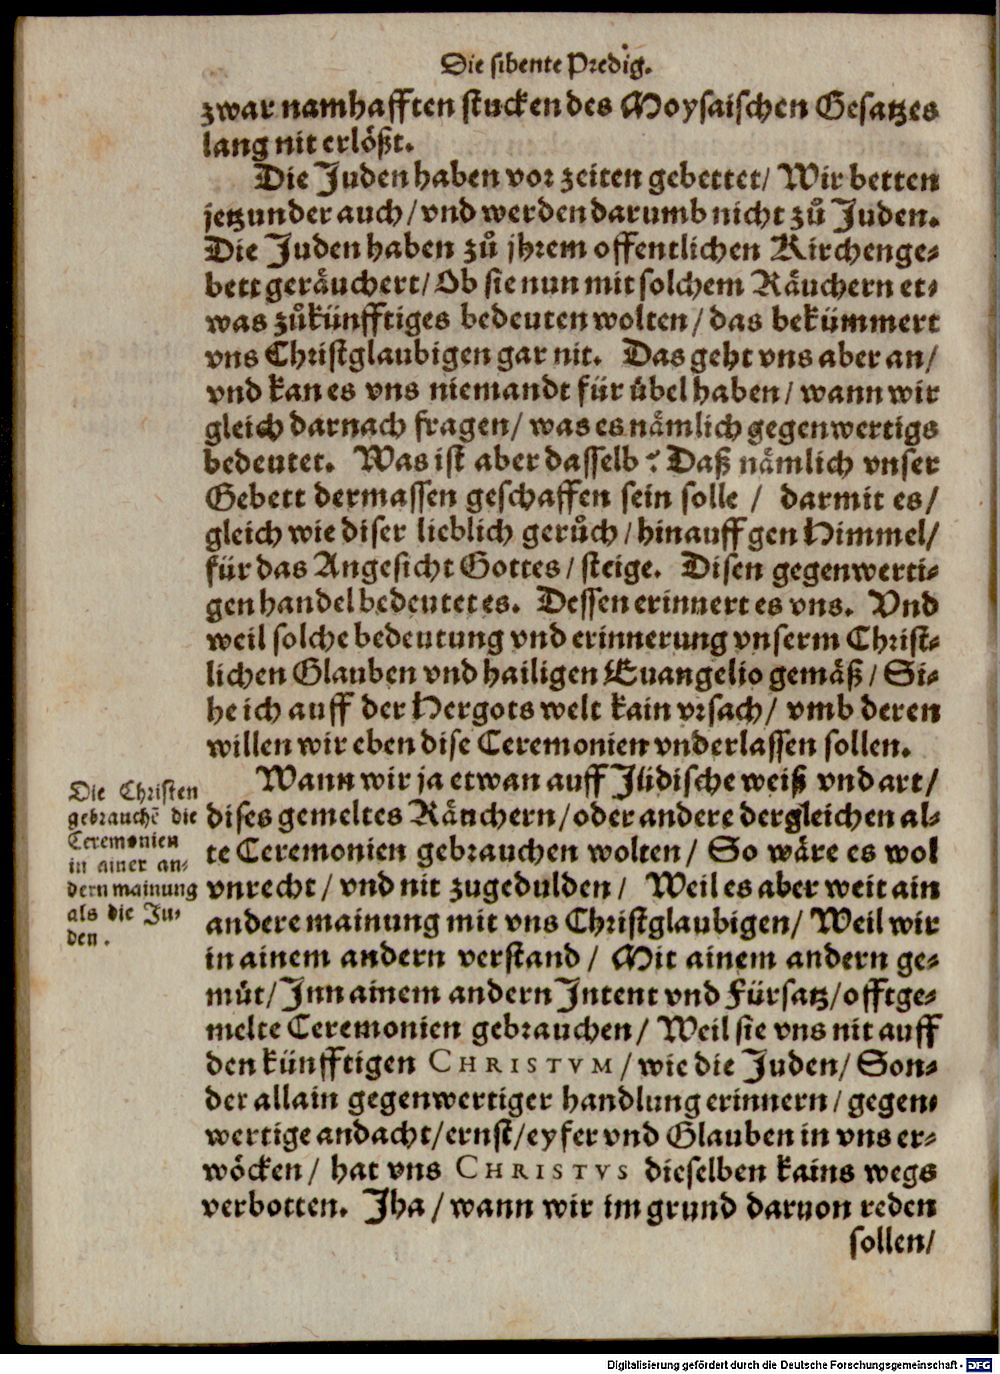 Die sibente Predig.
zwar namhafften stucken des Moysaischen Gesatzes
lang nit erlößt.
Die Juden haben vor zeiten gebettet/ Wir betten
jetzunder auch/ vnd werden darumb nicht zů Juden.
Die Juden haben zů jhrem offentlichen Kirchenge-
bett geräuchert/ Ob sie nun mit solchem Räuchern et-
was zůkünfftiges bedeuten wolten/ das bekümmert
vns Christglaubigen gar nit. Das geht vns aber an/
vnd kan es vns niemandt für übel haben/ wann wir
gleich darnach fragen/ was es nämlich gegenwertigs
bedeutet. Was ist aber dasselb? Daß nämlich vnser
Gebett dermassen geschaffen sein solle / darmit es/
gleich wie diser lieblich gerůch/ hinauff gen Himmel/
für das Angesicht Gottes/ steige. Disen gegenwerti-
gen handel bedeutet es. Dessen erinnert es vns. Vnd
weil solche bedeutung vnd erinnerung vnserm Christ-
lichen Glauben vnd hailigen Euangelio gemäß/ Si-
he ich auff der Hergots welt kain vrsach/ vmb deren
willen wir eben dise Ceremonien vnderlassen sollen.
Wann wir ja etwan auff Jüdische weiß vnd art/
dises gemeltes Räuchern/ oder andere dergleichen al-
te Ceremonien gebrauchen wolten/ So wäre es wol
vnrecht/ vnd nit zugedulden/ Weil es aber weit ain
andere mainung mit vns Christglaubigen/ Weil wir
in ainem andern verstand / Mit ainem andern ge-
müt/ Inn ainem andern Intent vnd Fürsatz/ offtge-
melte Ceremonien gebrauchen/ Weil sie vns nit auff
den künfftigen CHRISTVM/ wie die Juden/ Son-
der allain gegenwertiger handlung erinnern/ gegen-
wertige andacht/ ernst/ eyfer vnd Glauben in vns er-
wöcken/ hat vns CHRISTVS dieselben kains wegs
verbotten. Jha/ wann wir im grund daruon reden
sollen/
Die Christen
gebrauchē die
Ceremonien
in ainer an-
dern mainung
als die Ju-
den.
Digitalisierung gefördert durch die Deutsche Forschungsgemeinschaft - DFG